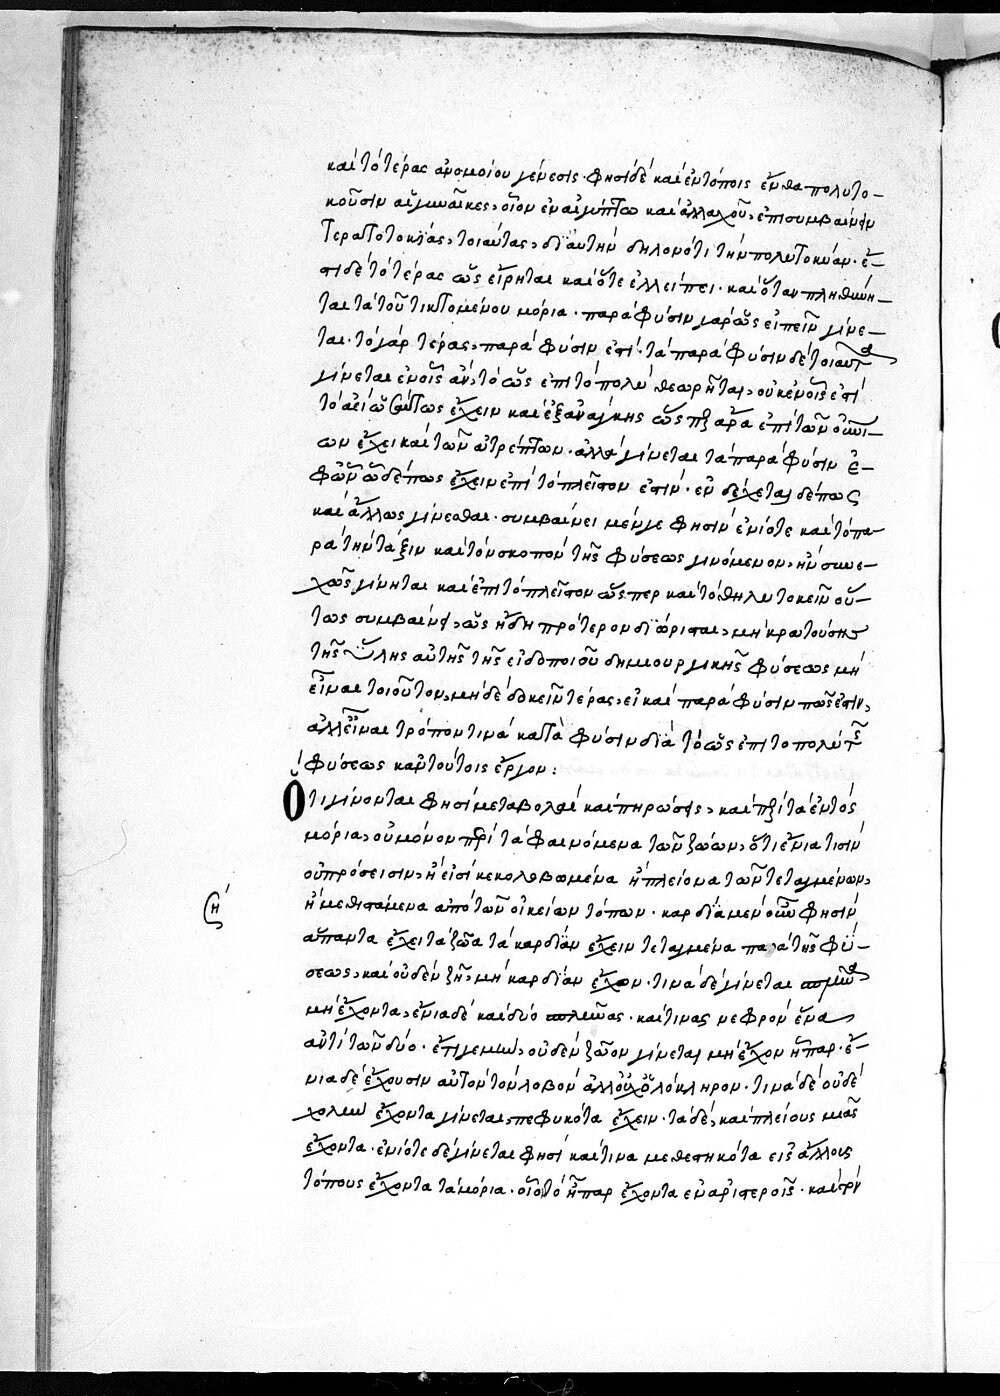 καὶ τὸ τέρας ἀνομοίου γένεσις· φησὶ δὲ καὶ ἐν τόποις ἔνθα πολυτο-
κοῦσιν αἱ γυναῖκες, οἷον ἐν αἰγύπτω καὶ ἀλλαχοῦ, ἐπισυμβαίνειν
τερατοτοκίας, τοιαύτας, δι' αὐτὴν δηλονότι τὴν πολυτοκίαν· ἔ-
στι δὲ τὸ τέρας ὡς εἴρηται καὶ ὅτε ἐλλείπει· καὶ ὅταν πληθύνη-
ται τὰ τοῦ τικτομένου μόρια· παρὰ φύσιν γὰρ ὡς εἰπεῖν γίνε-
ται· τὸ γὰρ τέρας, παρὰ φύσιν ἐστί· τὰ παρὰ φύσιν δὲ τοιαῦτα
γίνεται ἐν οἷς ἂν, τὸ ὡς ἐπὶ τὸ πολὺ θεωρῆται, οὐκ ἐν οἷς ἐστὶ
τὸ ἀεὶ ὡσαύτως ἔχειν καὶ ἐξ ἀνάγκης ὥσπερ ἄρα ἐπὶ τῶν οὐρανί-
ων ἔχει καὶ τῶν ἀτρέπτων· ἀλλὰ γίνεται τὰ παρὰ φύσιν ἐ-
φ' ὧν ὧδέ πως ἔχειν ἐπὶ τὸ πλεῖστον ἐστίν· ἐνδέχεται δέ πως
καὶ ἄλλως γίνεσθαι· συμβαίνει μέν γε φησὶν ἐνίοτε καὶ τὸ πα-
ρὰ τὴν τάξιν καὶ τὸν σκοπὸν τῆς φύσεως γινόμενον, ἢν συνε-
χῶς γίνηται καὶ ἐπὶ τὸ πλεῖστον ὥσπερ καὶ τὸ θηλυτοκεῖν οὕ-
τως συμβαίνει, ὡς ἤδη πρότερον διώρισται, μὴ κρατούσης
τῆς ὕλης αὐτῆς τῆς εἰδοποιοῦ δημιουργικῆς φύσεως μὴ
εἶναι τοιοῦτον, μηδὲ δοκεῖν τέρας, εἰ καὶ παρὰ φύσιν πῶς ἐστιν,
ἀλλ' εἶναι τρόπον τινὰ κατὰ φύσιν διὰ τὸ ὡς ἐπὶ τὸ πολὺ τῆς
φύσεως καὶ τούτοις ἔργον:
Ὅτι γίνονται φησὶ μεταβολαὶ καὶ πηρώσεις, καὶ περὶ τὰ ἐντὸς
μόρια, οὐ μόνον περὶ τὰ φαινόμενα τῶν ζώων, ὅτι ἔνια τισὶν
οὐ πρόσεισιν, ἢ εἰσὶ κεκολοβωμένα ἢ πλείονα τῶν τεταγμένων,
ἢ μεθιστάμενα ἀπὸ τῶν οἰκείων τόπων· καρδίαν μὲν οὖν φησὶν
ἅπαντα ἔχει τὰ ζῶα τὰ καρδίαν ἔχειν τεταγμένα παρὰ τῆς φύ-
σεως, καὶ οὐδὲν ζῆ, μὴ καρδίαν ἔχον· τινὰ δὲ γίνεται σπλῆνα
μὴ ἔχοντα, ἔνια δὲ καὶ δύο σπλῆνας· καὶ τινας νεφρὸν ἕνα
ἀντὶ τῶν δύο· ἔτι γεμὴν, οὐδὲν ζῶον γίνεται μὴ ἔχον ἧπαρ· ἔ-
νια δὲ ἔχουσιν αὐτὸν τὸν λοβὸν ἀλλ' οὐχ ὁλόκληρον· τινὰ δὲ οὐδὲ
χολὴν ἔχοντα γίνεται, πεφυκότα ἔχειν· τὰ δὲ, καὶ πλείους μιᾶς
ἔχοντα· ἐνίοτε δὲ γίνεται φησὶ καὶ τινα μεθεστηκότα εἰς ἄλλους
τόπους ἔχοντα τὰ μόρια· οἷον τὸ ἧπαρ ἔχοντα ἐν ἀριστεροῖς· καὶ τὸν